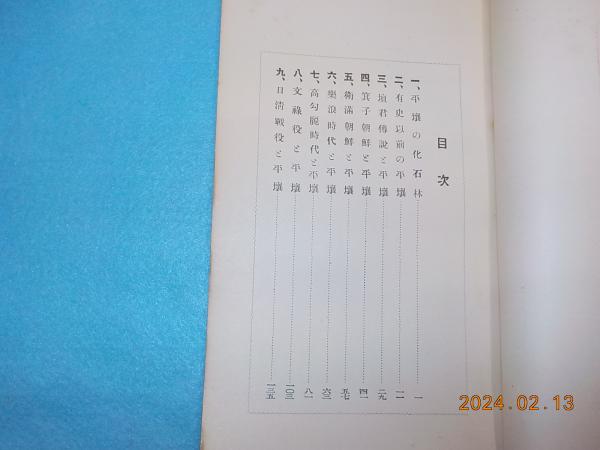 目次
一、平壤の化石林……一
二、有史以前の平壤……一一
三、壇君傳說と平壤……二九
四、箕子朝鮮と平壤……四一
五、衛滿朝鮮と平壤……五七
六、樂浪時代と平壤……六三
七、高勾麗時代と平壤……八一
八、文祿役と平壤……一〇三
九、日淸戰役と平壤……一三五
2024.02.13